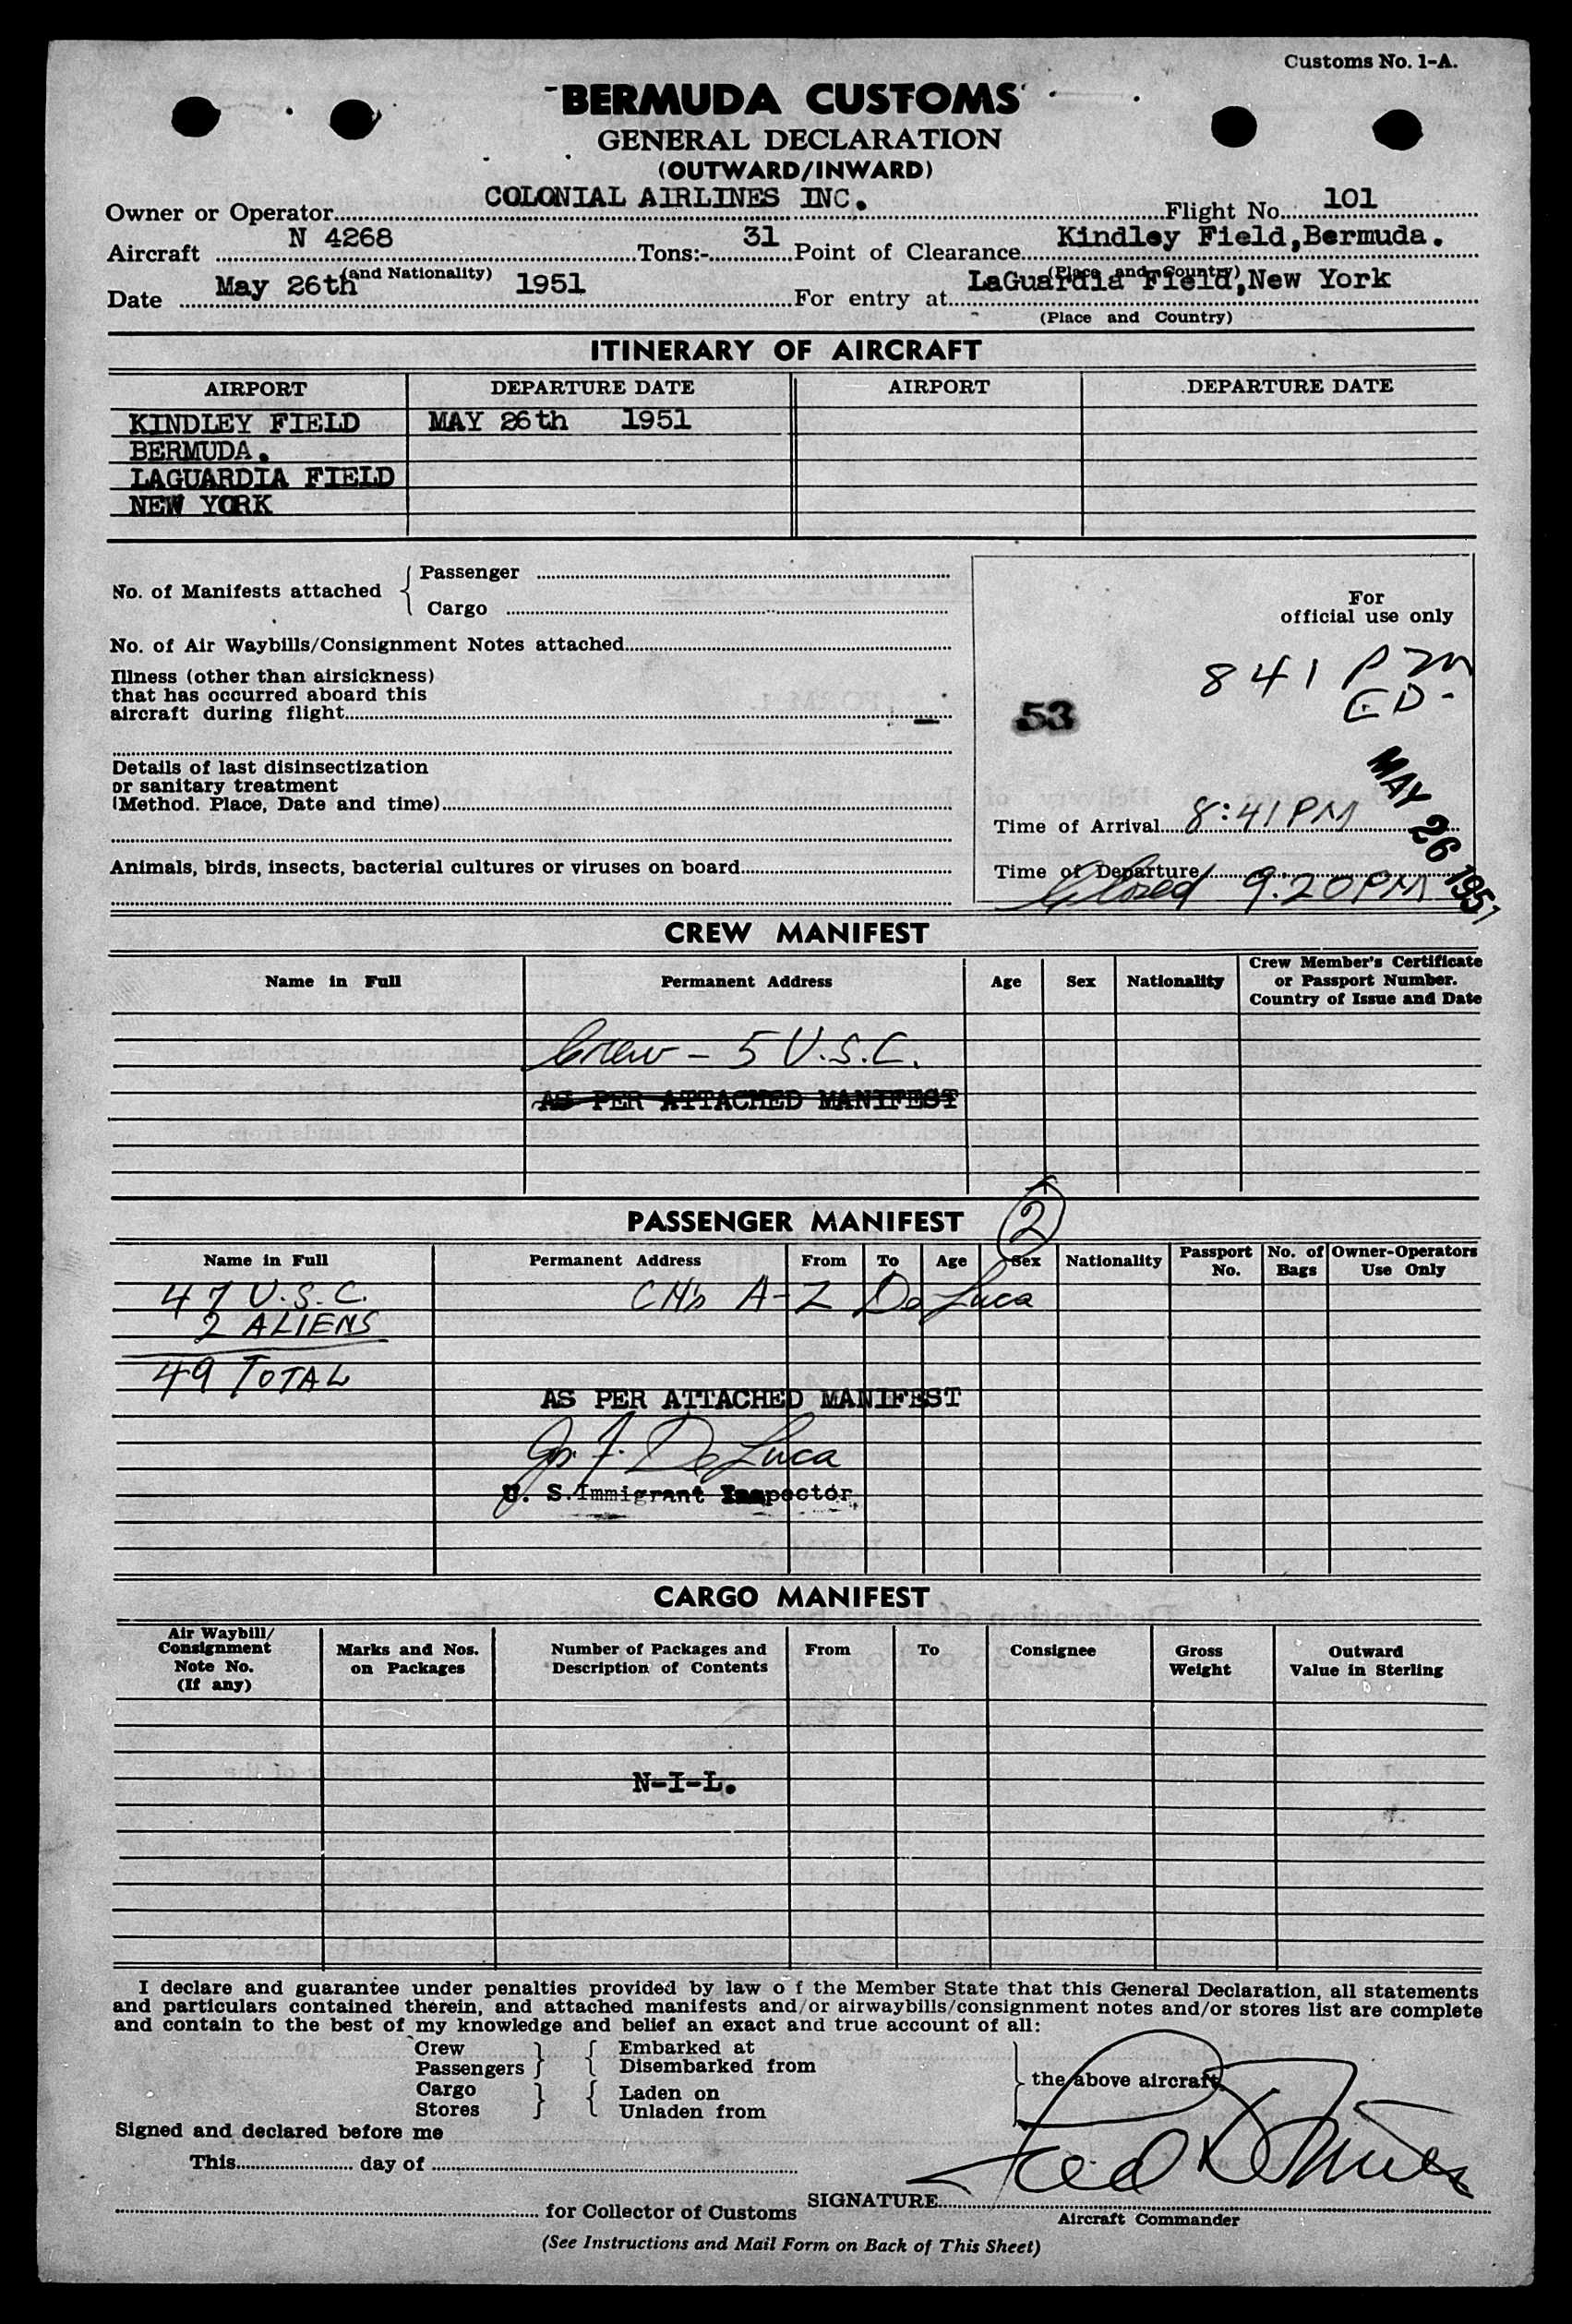 Customs No. 1-A.
BERMUDA CUSTOMS
GENERAL DECLARATION
(OUTWARD/INWARD)
Owner or Operator COLONIAL AIRLINES INC. Flight No. 101
Aircraft N 4268 Tons:- 31 Point of Clearance Kindley Field, Bermuda.
(and Nationality) (Place and Country)
Date May 26th 1951 For entry at LaGuardia Field, New York
(Place and Country)
ITINERARY OF AIRCRAFT
AIRPORT DEPARTURE DATE AIRPORT DEPARTURE DATE
KINDLEY FIELD MAY 26th 1951
BERMUDA.
LAGUARDIA FIELD
NEW YORK
No. of Manifests attached { Passenger
Cargo
For
official use only
No. of Air Waybills/Consignment Notes attached
Illness (other than airsickness)
that has occurred aboard this
aircraft during flight —
841 PM
ED-
53
Details of last disinsectization
or sanitary treatment
(Method. Place, Date and time)
MAY 26 1951
Time of Arrival 8:41 PM
Animals, birds, insects, bacterial cultures or viruses on board
Time of Departure
Closed 9.20 PM
CREW MANIFEST
Name in Full Permanent Address Age Sex Nationality Crew Member's Certificate
or Passport Number.
Country of Issue and Date
Crew - 5 U.S.C.
AS PER ATTACHED MANIFEST
PASSENGER MANIFEST 2
Name in Full Permanent Address From To Age Sex Nationality Passport No. No. of Bags Owner-Operators Use Only
47 U.S.C. A-Z De Luca
2 ALIENS
49 TOTAL
AS PER ATTACHED MANIFEST
De Luca
U. S. Immigrant Inspector
CARGO MANIFEST
Air Waybill/
Consignment
Note No.
(If any)
Marks and Nos.
on Packages
Number of Packages and
Description of Contents
From
To
Consignee
Gross
Weight
Outward
Value in Sterling
N-I-L.
I declare and guarantee under penalties provided by law o f the Member State that this General Declaration, all statements
and particulars contained therein, and attached manifests and/or airwaybills/consignment notes and/or stores list are complete
and contain to the best of my knowledge and belief an exact and true account of all:
Crew } { Embarked at
Passengers } { Disembarked from
Cargo } { Laden on
Stores } { Unladen from
} the above aircraft.
Signed and declared before me
This day of
for Collector of Customs SIGNATURE
Aircraft Commander
(See Instructions and Mail Form on Back of This Sheet)